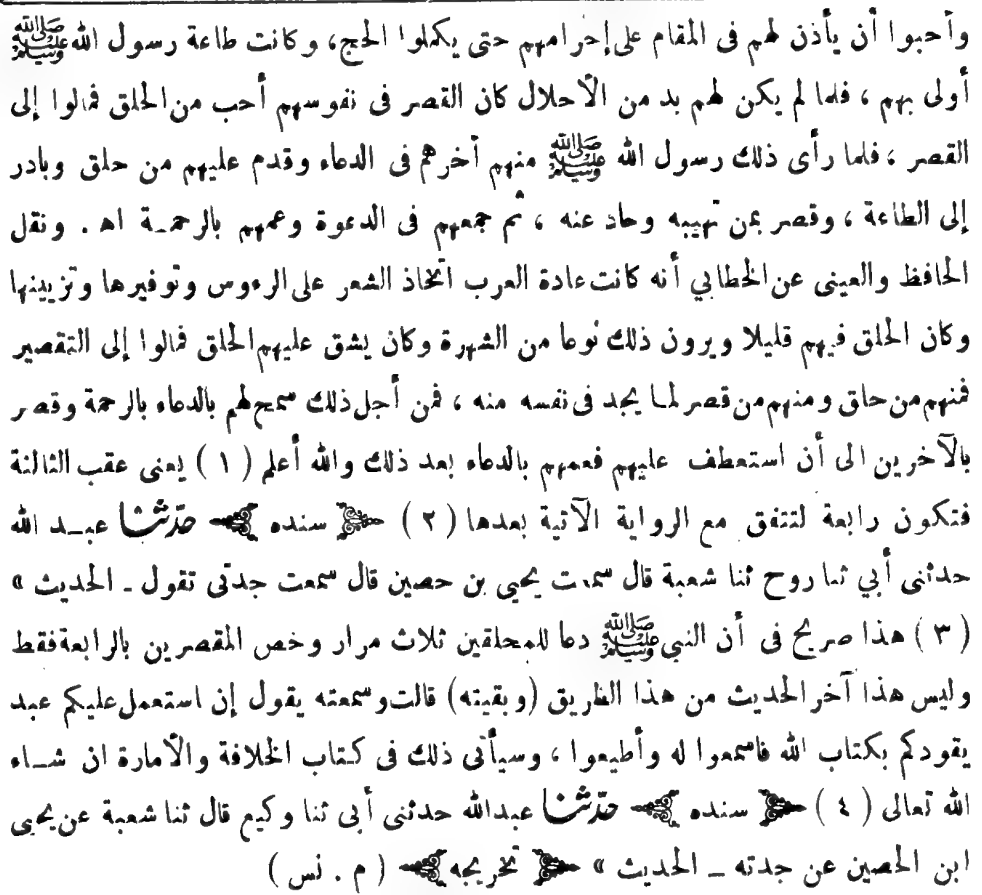 وأحبوا أن يأذن لهم فى المقام على إحرامهم حتى يكملوا الحج، وكانت طاعة رسول الله ﷺ
أولى بهم ، فلما لم يكن لهم بد من الأحلال كان القصر فى نفوسهم أحب من الحلق فمالوا إلى
القصر ، فلما رأى ذلك رسول الله ﷺ منهم أخرهم فى الدعاء وقدم عليهم من حلق وبادر
إلى الطاعة ، وقصر بمن تهيبه وحاد عنه ، ثم جمعهم فى الدعوة وعمهم بالرحمـة اهـ . ونقل
الحافظ والعينى عن الخطابي أنه كانت عادة العرب اتخاذ الشعر على الرءوس وتوفيرها وتزيينها
وكان الحلق فيهم قليلا ويرون ذلك نوعا من الشهرة وكان يشق عليهم الحلق فمالوا إلى التقصير
فمنهم من حلق ومنهم من قصر لما يجد فى نفسه منه ، فمن أجل ذلك سمح لهم بالدعاء بالرحمة وقصر
بالآخرين الى أن استعطف عليهم فعمهم بالدعاء بعد ذلك والله أعلم ( ١ ) يعنى عقب الثالثة
فتكون رابعة لتتفق مع الرواية الآتية بعدها ( ٢ ) ﴿ سنده ﴾ حدّثنا عبـد الله
حدثنى أبي ثنا روح ثنا شعبة قال سمعت يحيى بن حصين قال سمعت جدتى تقول ـ الحديث »
( ٣ ) هذا صريح فى أن النبي ﷺ دعا للمحلقين ثلاث مرار وخص المقصرين بالرابعة فقط
وليس هذا آخر الحديث من هذا الطريق (وبقيته) قالت وسمعته يقول إن استعمل عليكم عبد
يقودكم بكتاب الله فاسمعوا له وأطيعوا ، وسيأتى ذلك فى كتاب الخلافة والأمارة ان شـاء
الله تعالى ( ٤ ) ﴿ سنده ﴾ حدّثنا عبدالله حدثنى أبى ثنا وكيع قال ثنا شعبة عن يحيى
ابن الحصين عن جدته ـ الحديث » ﴿ تخريجه ﴾ ( م . نس )